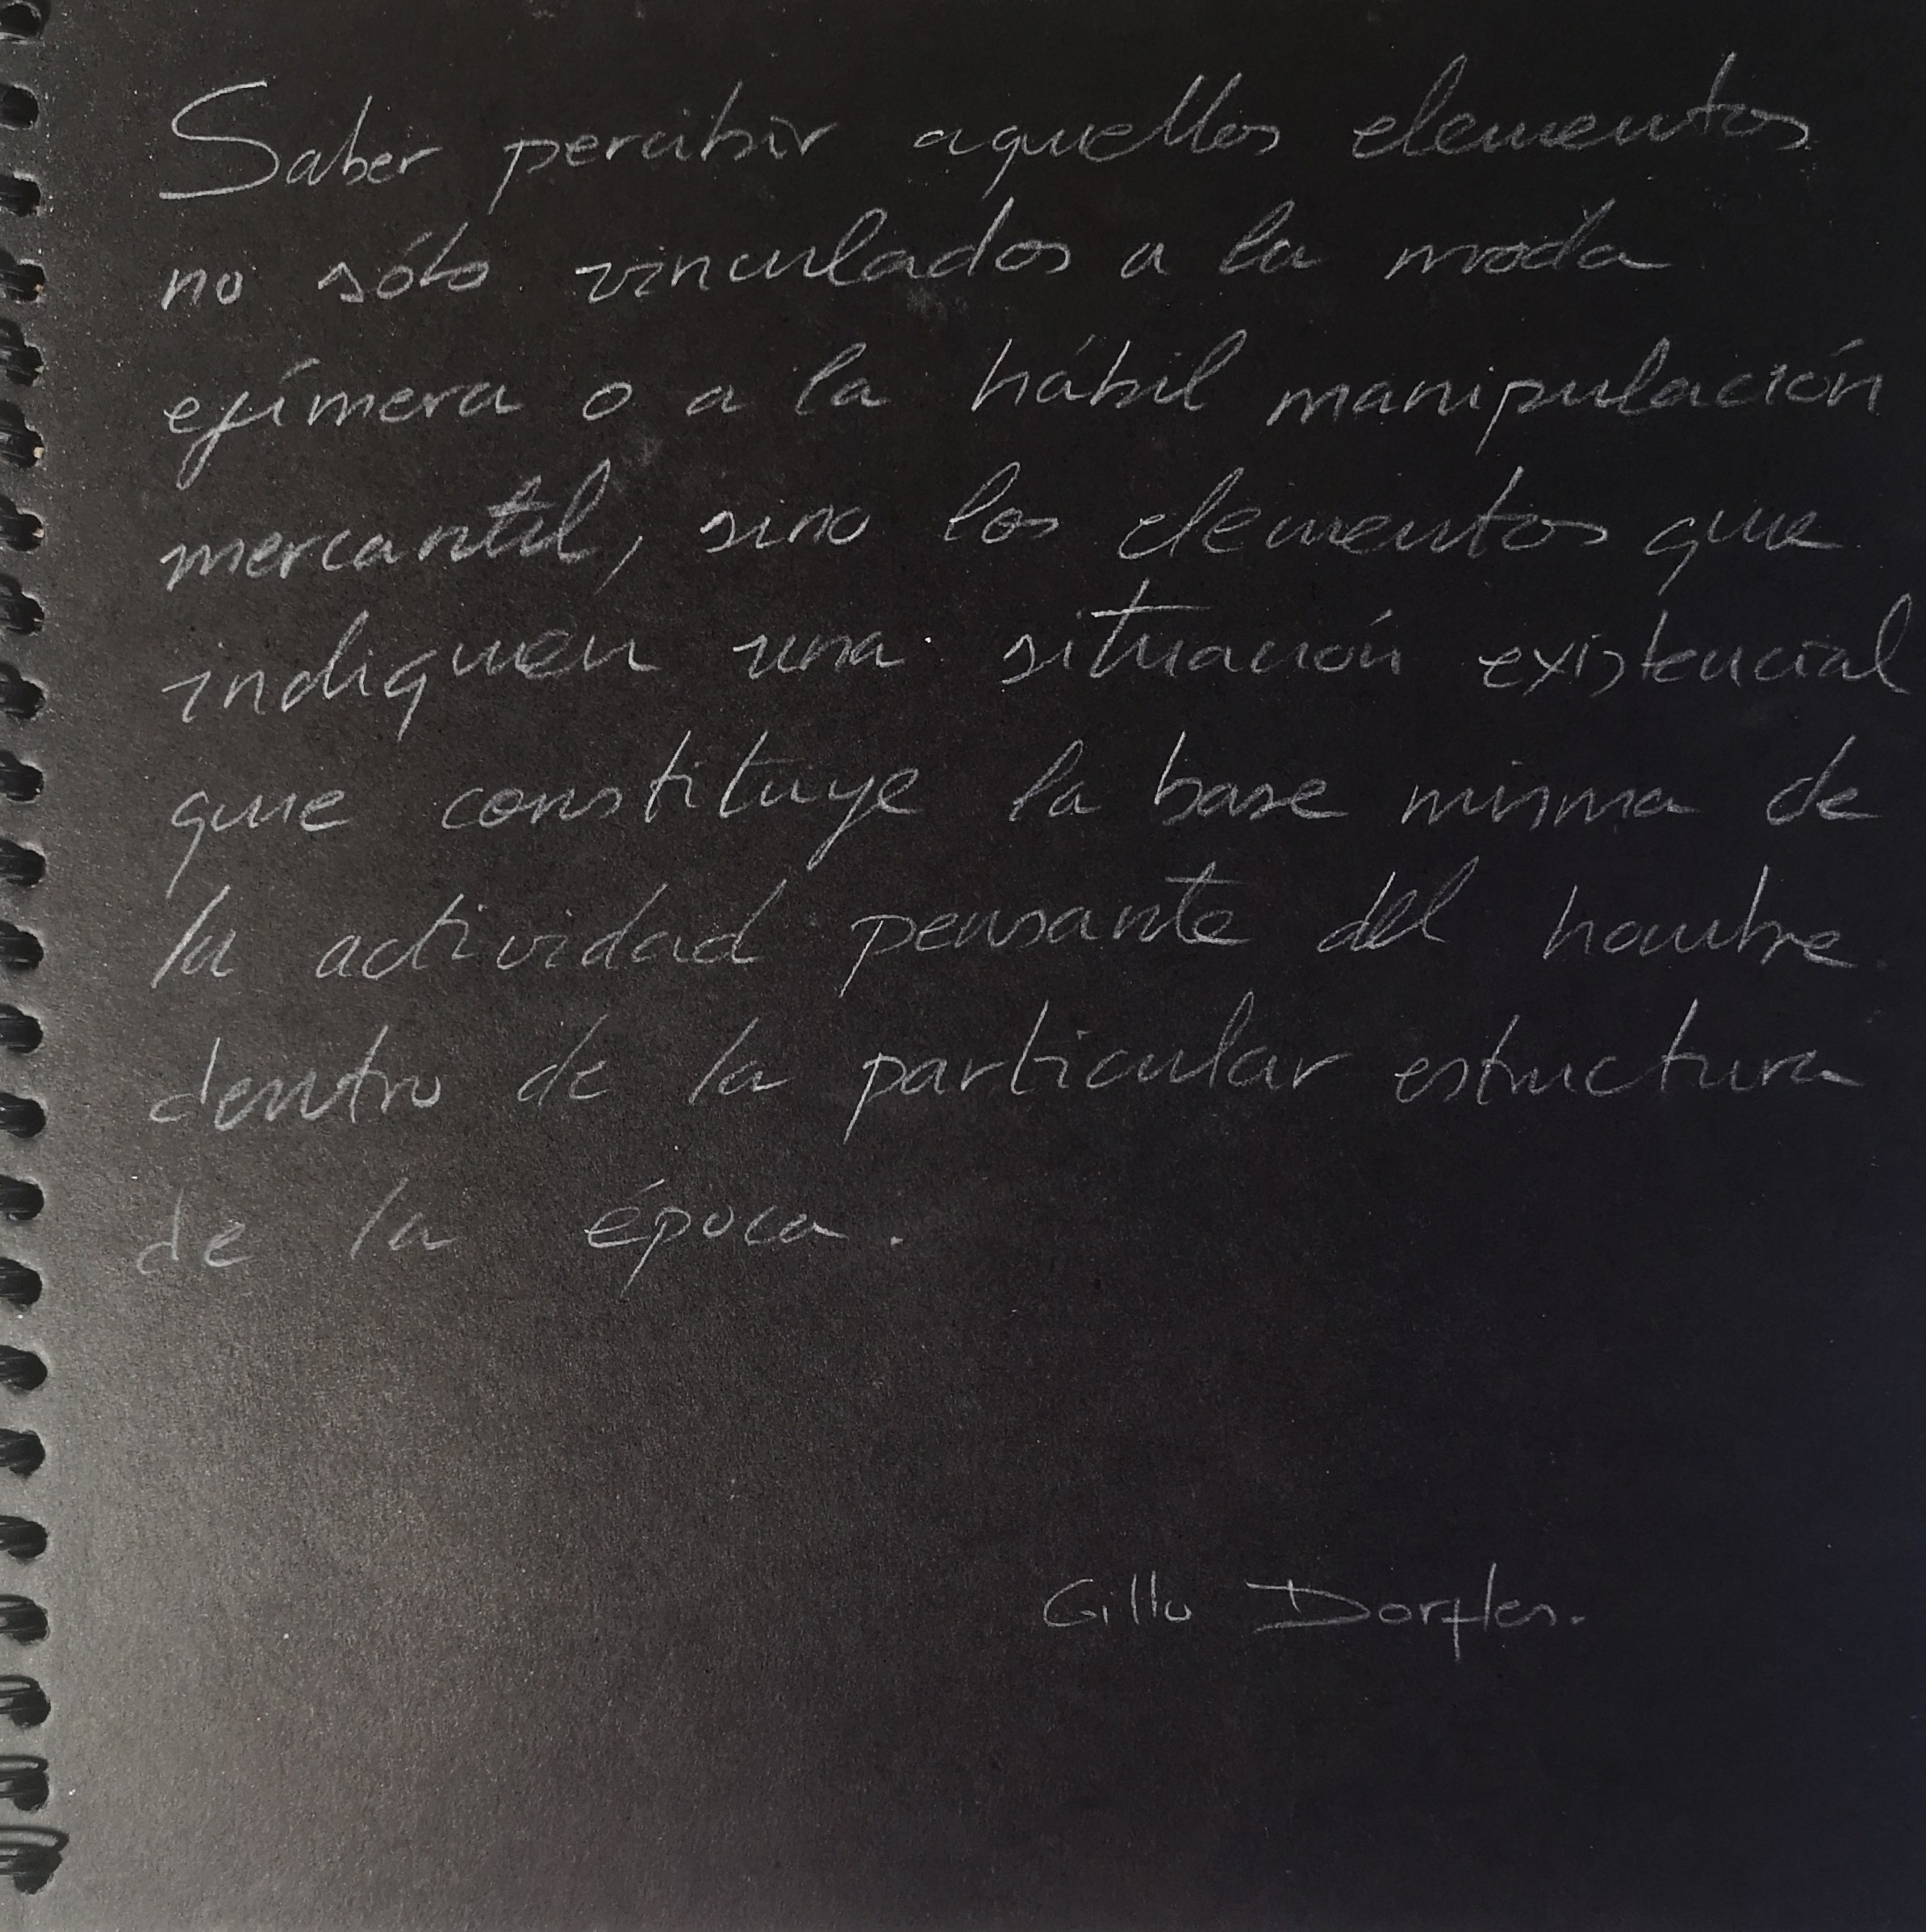 Saber percibir aquellos elementos
no sólo vinculados a la moda
efímera o a la hábil manipulación
mercantil, sino los elementos que
indiquen una situación existencial
que constituye la base misma de
la actividad pensante del hombre
dentro de la particular estructura
de la época.
Gillo Dorfles.